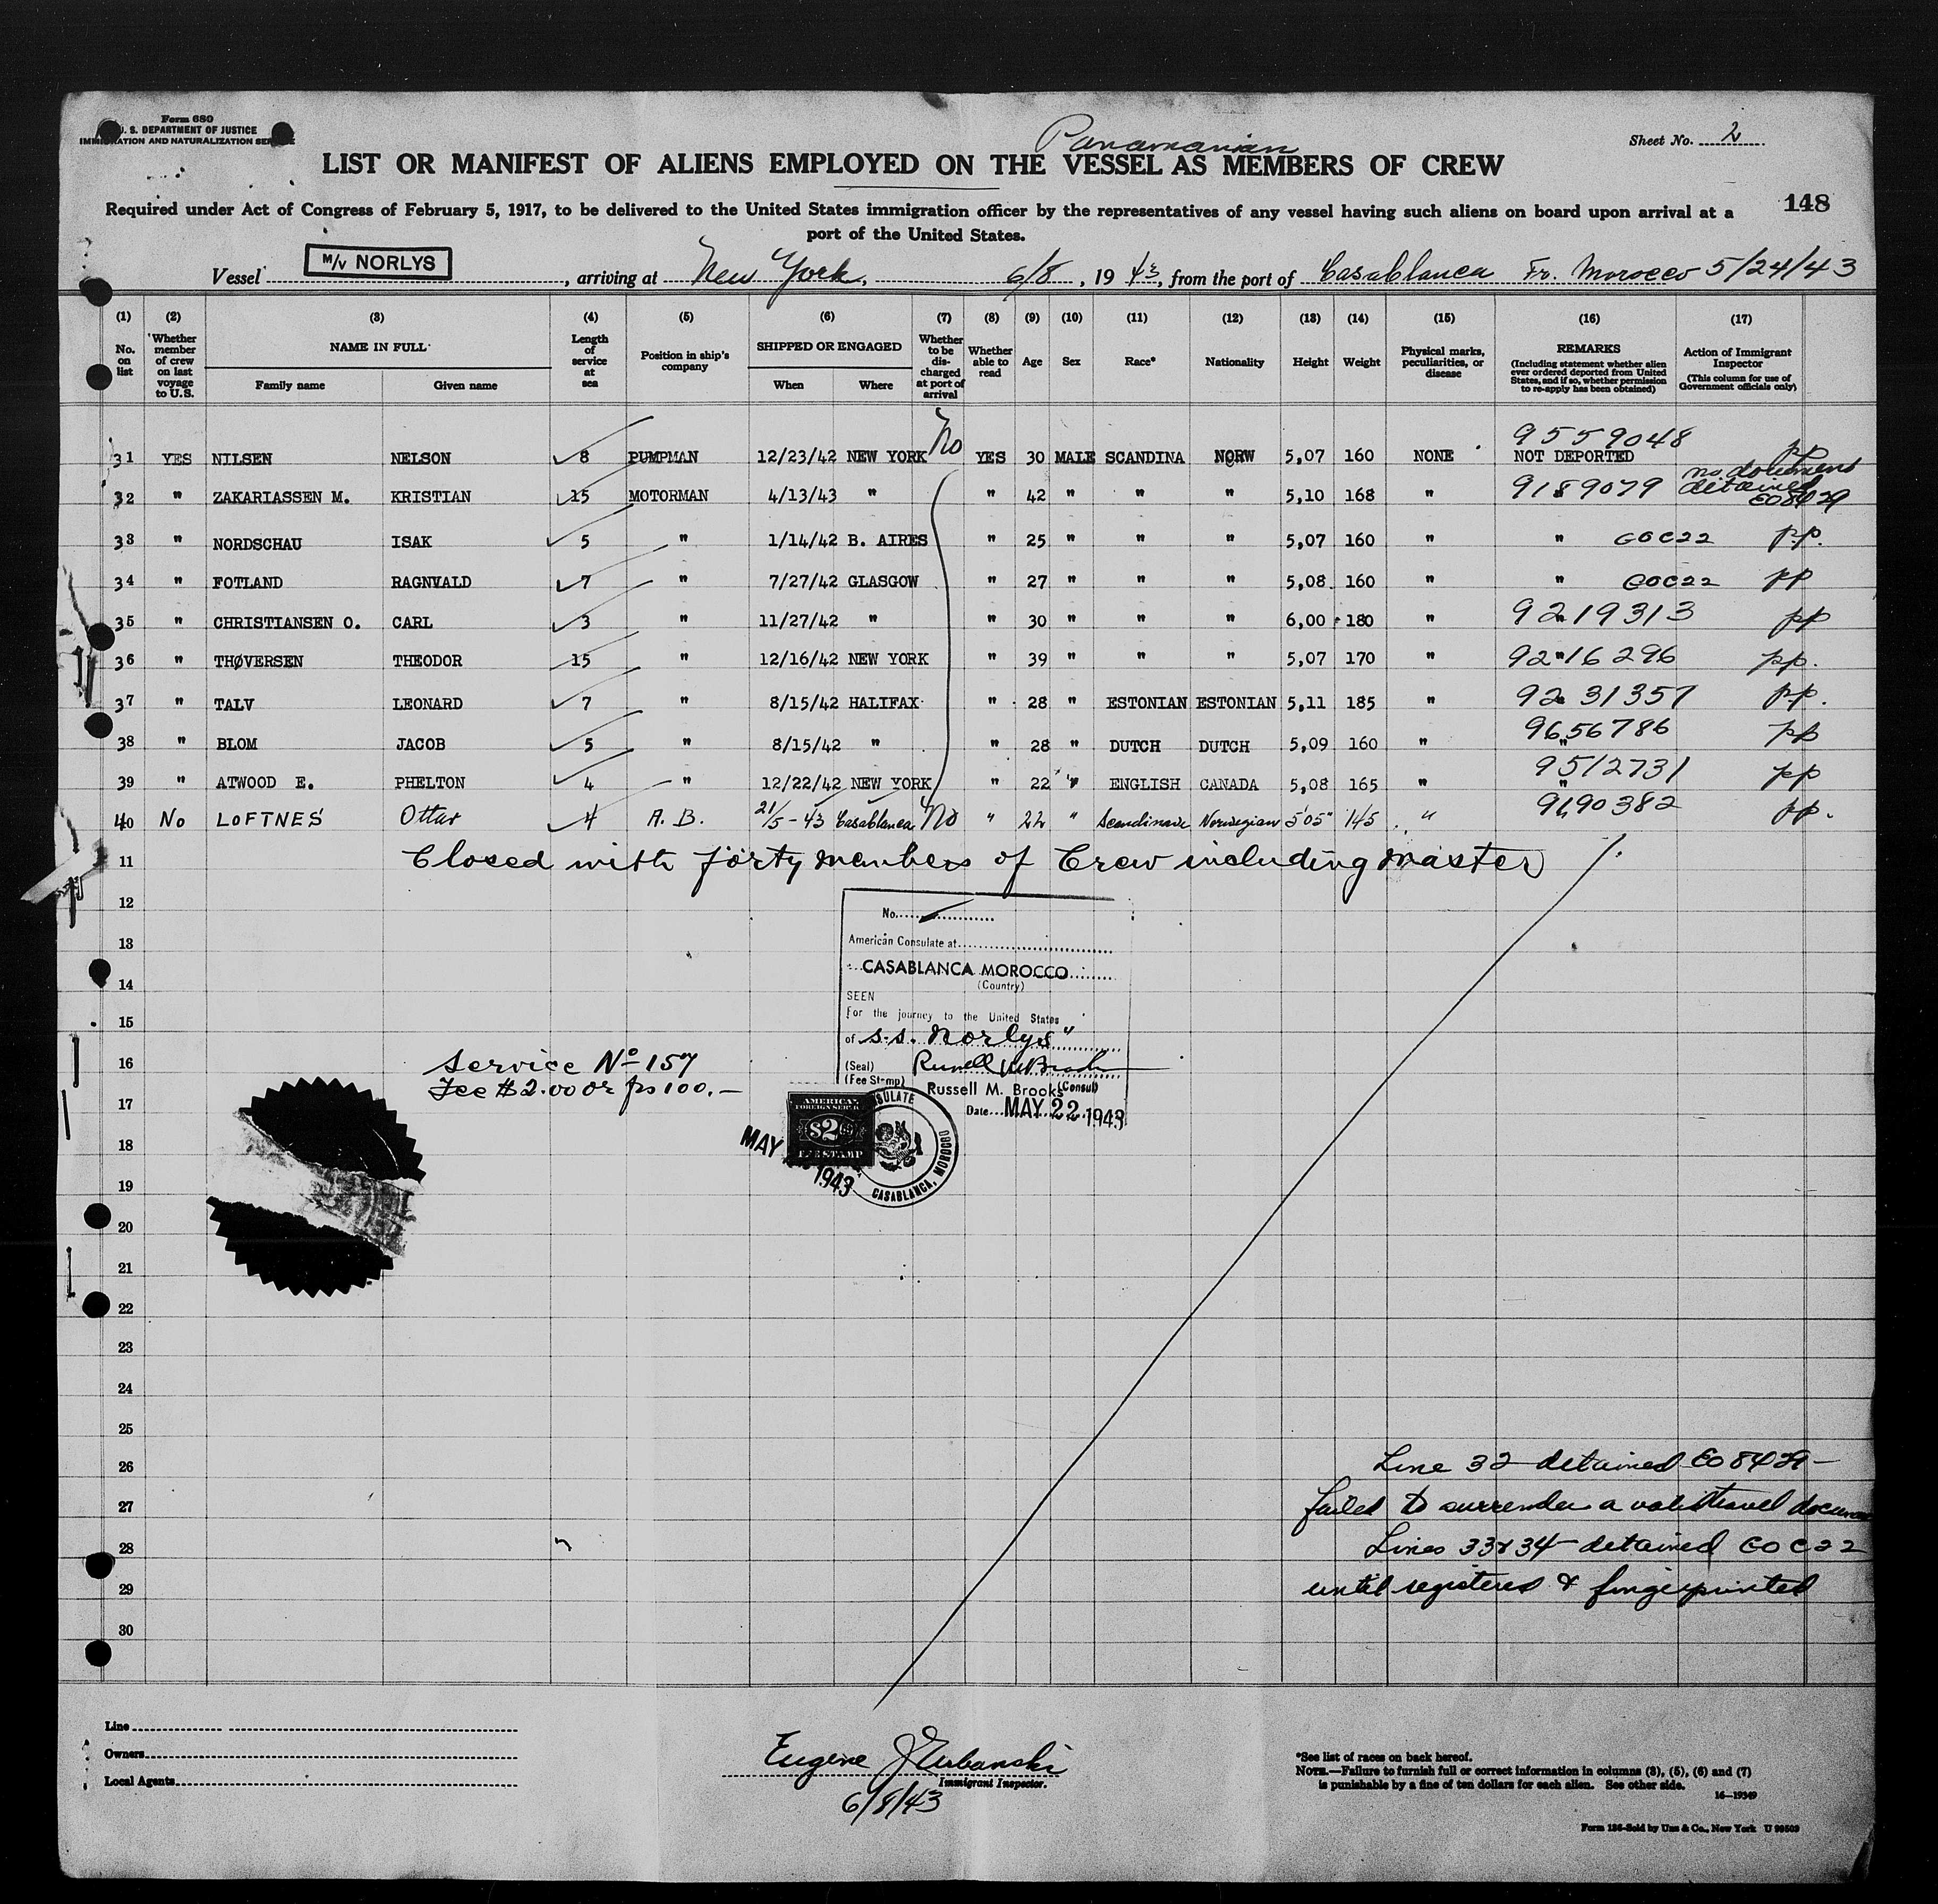 Form 680
U. S. DEPARTMENT OF JUSTICE
IMMIGRATION AND NATURALIZATION SERVICE
Sheet No. 2
Panamanian
LIST OR MANIFEST OF ALIENS EMPLOYED ON THE VESSEL AS MEMBERS OF CREW
148
Required under Act of Congress of February 5, 1917, to be delivered to the United States immigration officer by the representatives of any vessel having such aliens on board upon arrival at a
port of the United States.
Vessel M/V NORLYS, arriving at New York, 6/8, 19 43, from the port of Casablanca Fr. Morocco 5/24/43
(1) (2) (3) (4) (5) (6) (7) (8) (9) (10) (11) (12) (13) (14) (15) (16) (17)
No. on list
Whether member of crew on last voyage to U.S.
NAME IN FULL
Family name
Given name
Length of service at sea
Position in ship's company
SHIPPED OR ENGAGED
When
Where
Whether to be discharged at port of arrival
Whether able to read
Age
Sex
Race*
Nationality
Height
Weight
Physical marks, peculiarities, or disease
REMARKS
(Including statement whether alien ever ordered deported from United States, and if so, whether permission to re-apply has been obtained)
Action of Immigrant Inspector
(This column for use of Government officials only)
31 YES NILSEN NELSON 8 PUMPMAN 12/23/42 NEW YORK No YES 30 MALE SCANDINA NORW 5,07 160 NONE 9559048 NOT DEPORTED pp
32 " ZAKARIASSEN M. KRISTIAN 15 MOTORMAN 4/13/43 " " 42 " " " 5,10 168 " 9189079 no document detained EO8429
33 " NORDSCHAU ISAK 5 " 1/14/42 B. AIRES " 25 " " " 5,07 160 " " GOC22 pp.
34 " FOTLAND RAGNVALD 7 " 7/27/42 GLASGOW " 27 " " " 5,08 160 " " GOC22 pp
35 " CHRISTIANSEN O. CARL 3 " 11/27/42 " " 30 " " " 6,00 180 " 9219313 pp
36 " THØVERSEN THEODOR 15 " 12/16/42 NEW YORK " 39 " " " 5,07 170 " 9216296 pp.
37 " TALV LEONARD 7 " 8/15/42 HALIFAX " 28 " ESTONIAN ESTONIAN 5,11 185 " 9231357 pp.
38 " BLOM JACOB 5 " 8/15/42 " " 28 " DUTCH DUTCH 5,09 160 " 9656786 pp
39 " ATWOOD E. PHELTON 4 " 12/22/42 NEW YORK " 22 " ENGLISH CANADA 5,08 165 " 9512731 pp
40 No LOFTNES Ottar 4 A. B. 21/5-43 Casablanca No " 22 " Scandinav Norwegian 5'05" 145 " 9690382 pp.
11 Closed with forty members of Crew including master
12
13
14
15
16
17
18
19
20
21
22
23
24
25
26
27
28
29
30
No.
American Consulate at
CASABLANCA MOROCCO
(Country)
SEEN
For the journey to the United States
of s.s. Norlys"
(Seal)
(Fee Stamp)
Russell M. Brooks (Consul)
Date MAY 22 1943
Service No 157
Fee $2.00 or frs 100.-
AMERICAN
FOREIGN SERV.
$2
FEE STAMP
MAY 1943
CONSULATE
CASABLANCA, MOROCCO
Line 32 detained EO 8429 -
failed to surrender a valid travel document
Lines 33 & 34 - detained GOC22
until registered & fingerprinted
Line
Owners
Local Agents
Eugene J Urbanski
Immigrant Inspector.
6/8/43
*See list of races on back hereof.
NOTE.—Failure to furnish full or correct information in columns (3), (5), (6) and (7)
is punishable by a fine of ten dollars for each alien. See other side.
16—19349
Form 136-Sold by Unz & Co., New York